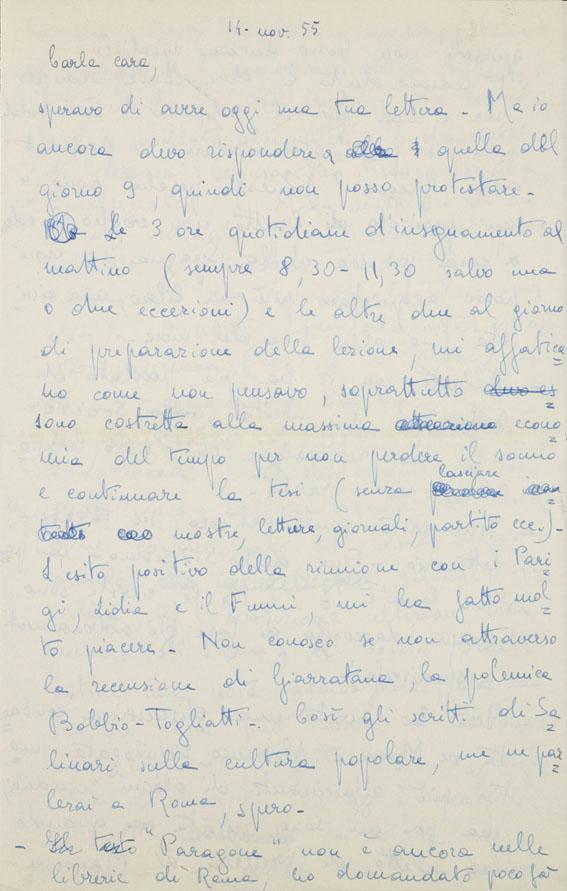 14- nov. 55
Carla cara,
speravo di avere oggi una tua lettera - Ma io
ancora devo rispondere a quella del
giorno 9, quindi non posso protestare -
Le 3 ore quotidiane d'insegnamento al
mattino (sempre 8,30 - 11,30 salvo una
o due eccezioni) e le altre due al giorno
di preparazione della lezione, mi affatica
no come non pensavo, soprattutto
sono costretta alla massima econo
mia del tempo per non perdere il sonno
e continuare la tesi (senza lasciare
mostre, letture, giornali, partito ecc.) -
L'esito positivo della riunione con i Pari
gi, Lidia e il Funni, mi ha fatto mol
to piacere - Non conosco se non attraverso
la recensione di Giarratana, la polemica
Bobbio - Togliatti -. Così gli scritti di Sa
linari sulla cultura popolare, me ne par
lerai a Roma, spero -
- "Paragone" non è ancora nelle
librerie di Roma, ho domandato poco fà